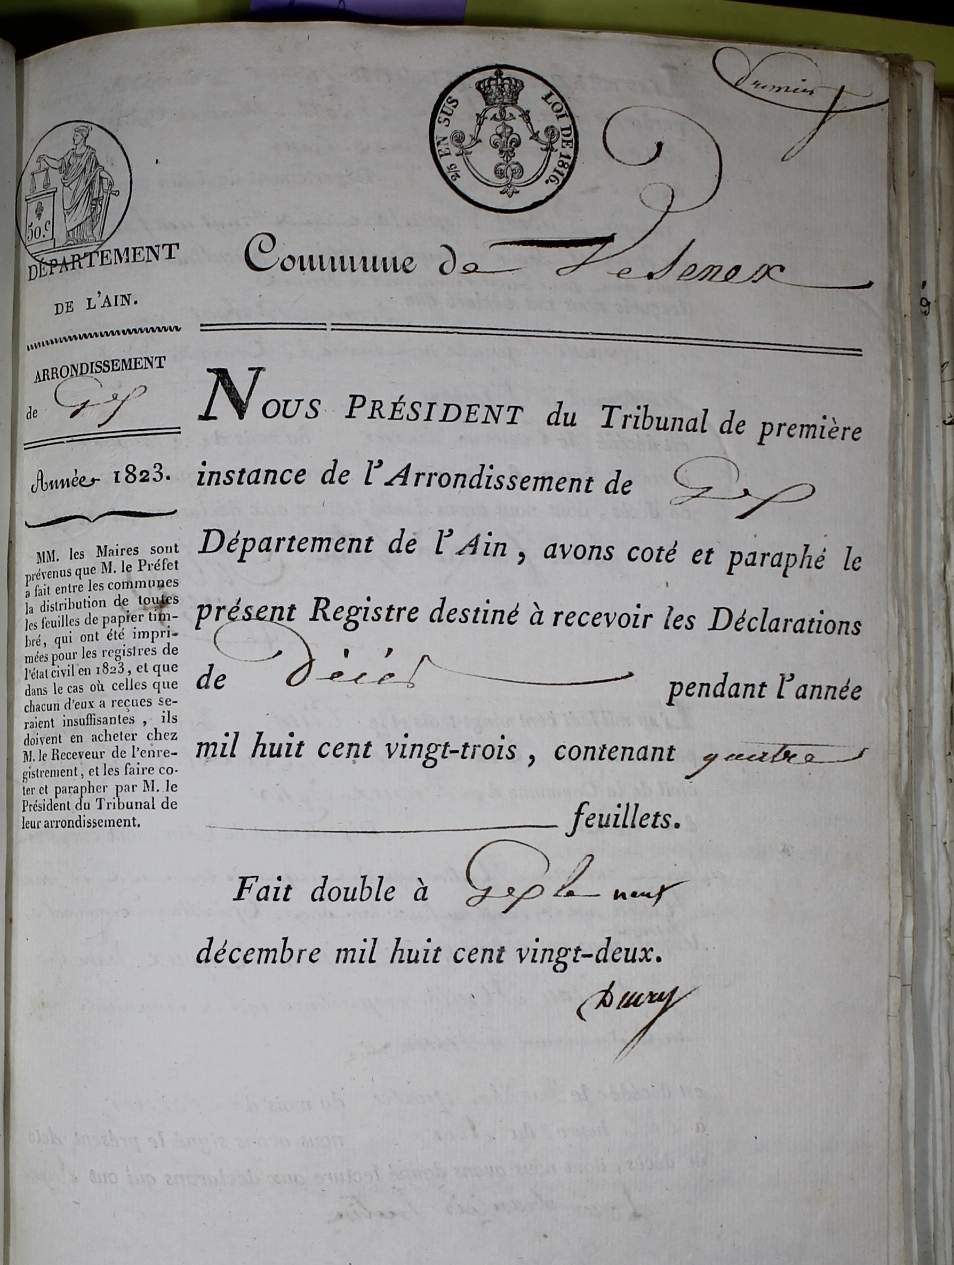 premier
2/5 EN SUS LOI DE 1816.
50.c
DÉPARTEMENT
DE L'AIN.
ARRONDISSEMENT
de Gex
Année 1823.
MM. les Maires sont
prévenus que M. le Préfet
a fait entre les communes
la distribution de toutes
les feuilles de papier tim-
bré, qui ont été impri-
mées pour les registres de
l'état civil en 1823, et que
dans le cas où celles que
chacun d'eux a reçues se-
raient insuffisantes, ils
doivent en acheter chez
M. le Receveur de l'enre-
gistrement, et les faire co-
ter et parapher par M. le
Président du Tribunal de
leur arrondissement.
Commune de Vesenex
NOUS PRÉSIDENT du Tribunal de première
instance de l'Arrondissement de Gex
Département de l'Ain, avons coté et paraphé le
présent Registre destiné à recevoir les Déclarations
de Décès pendant l'année
mil huit cent vingt-trois, contenant quatre
feuillets.
Fait double à Gex le neuf
décembre mil huit cent vingt-deux.